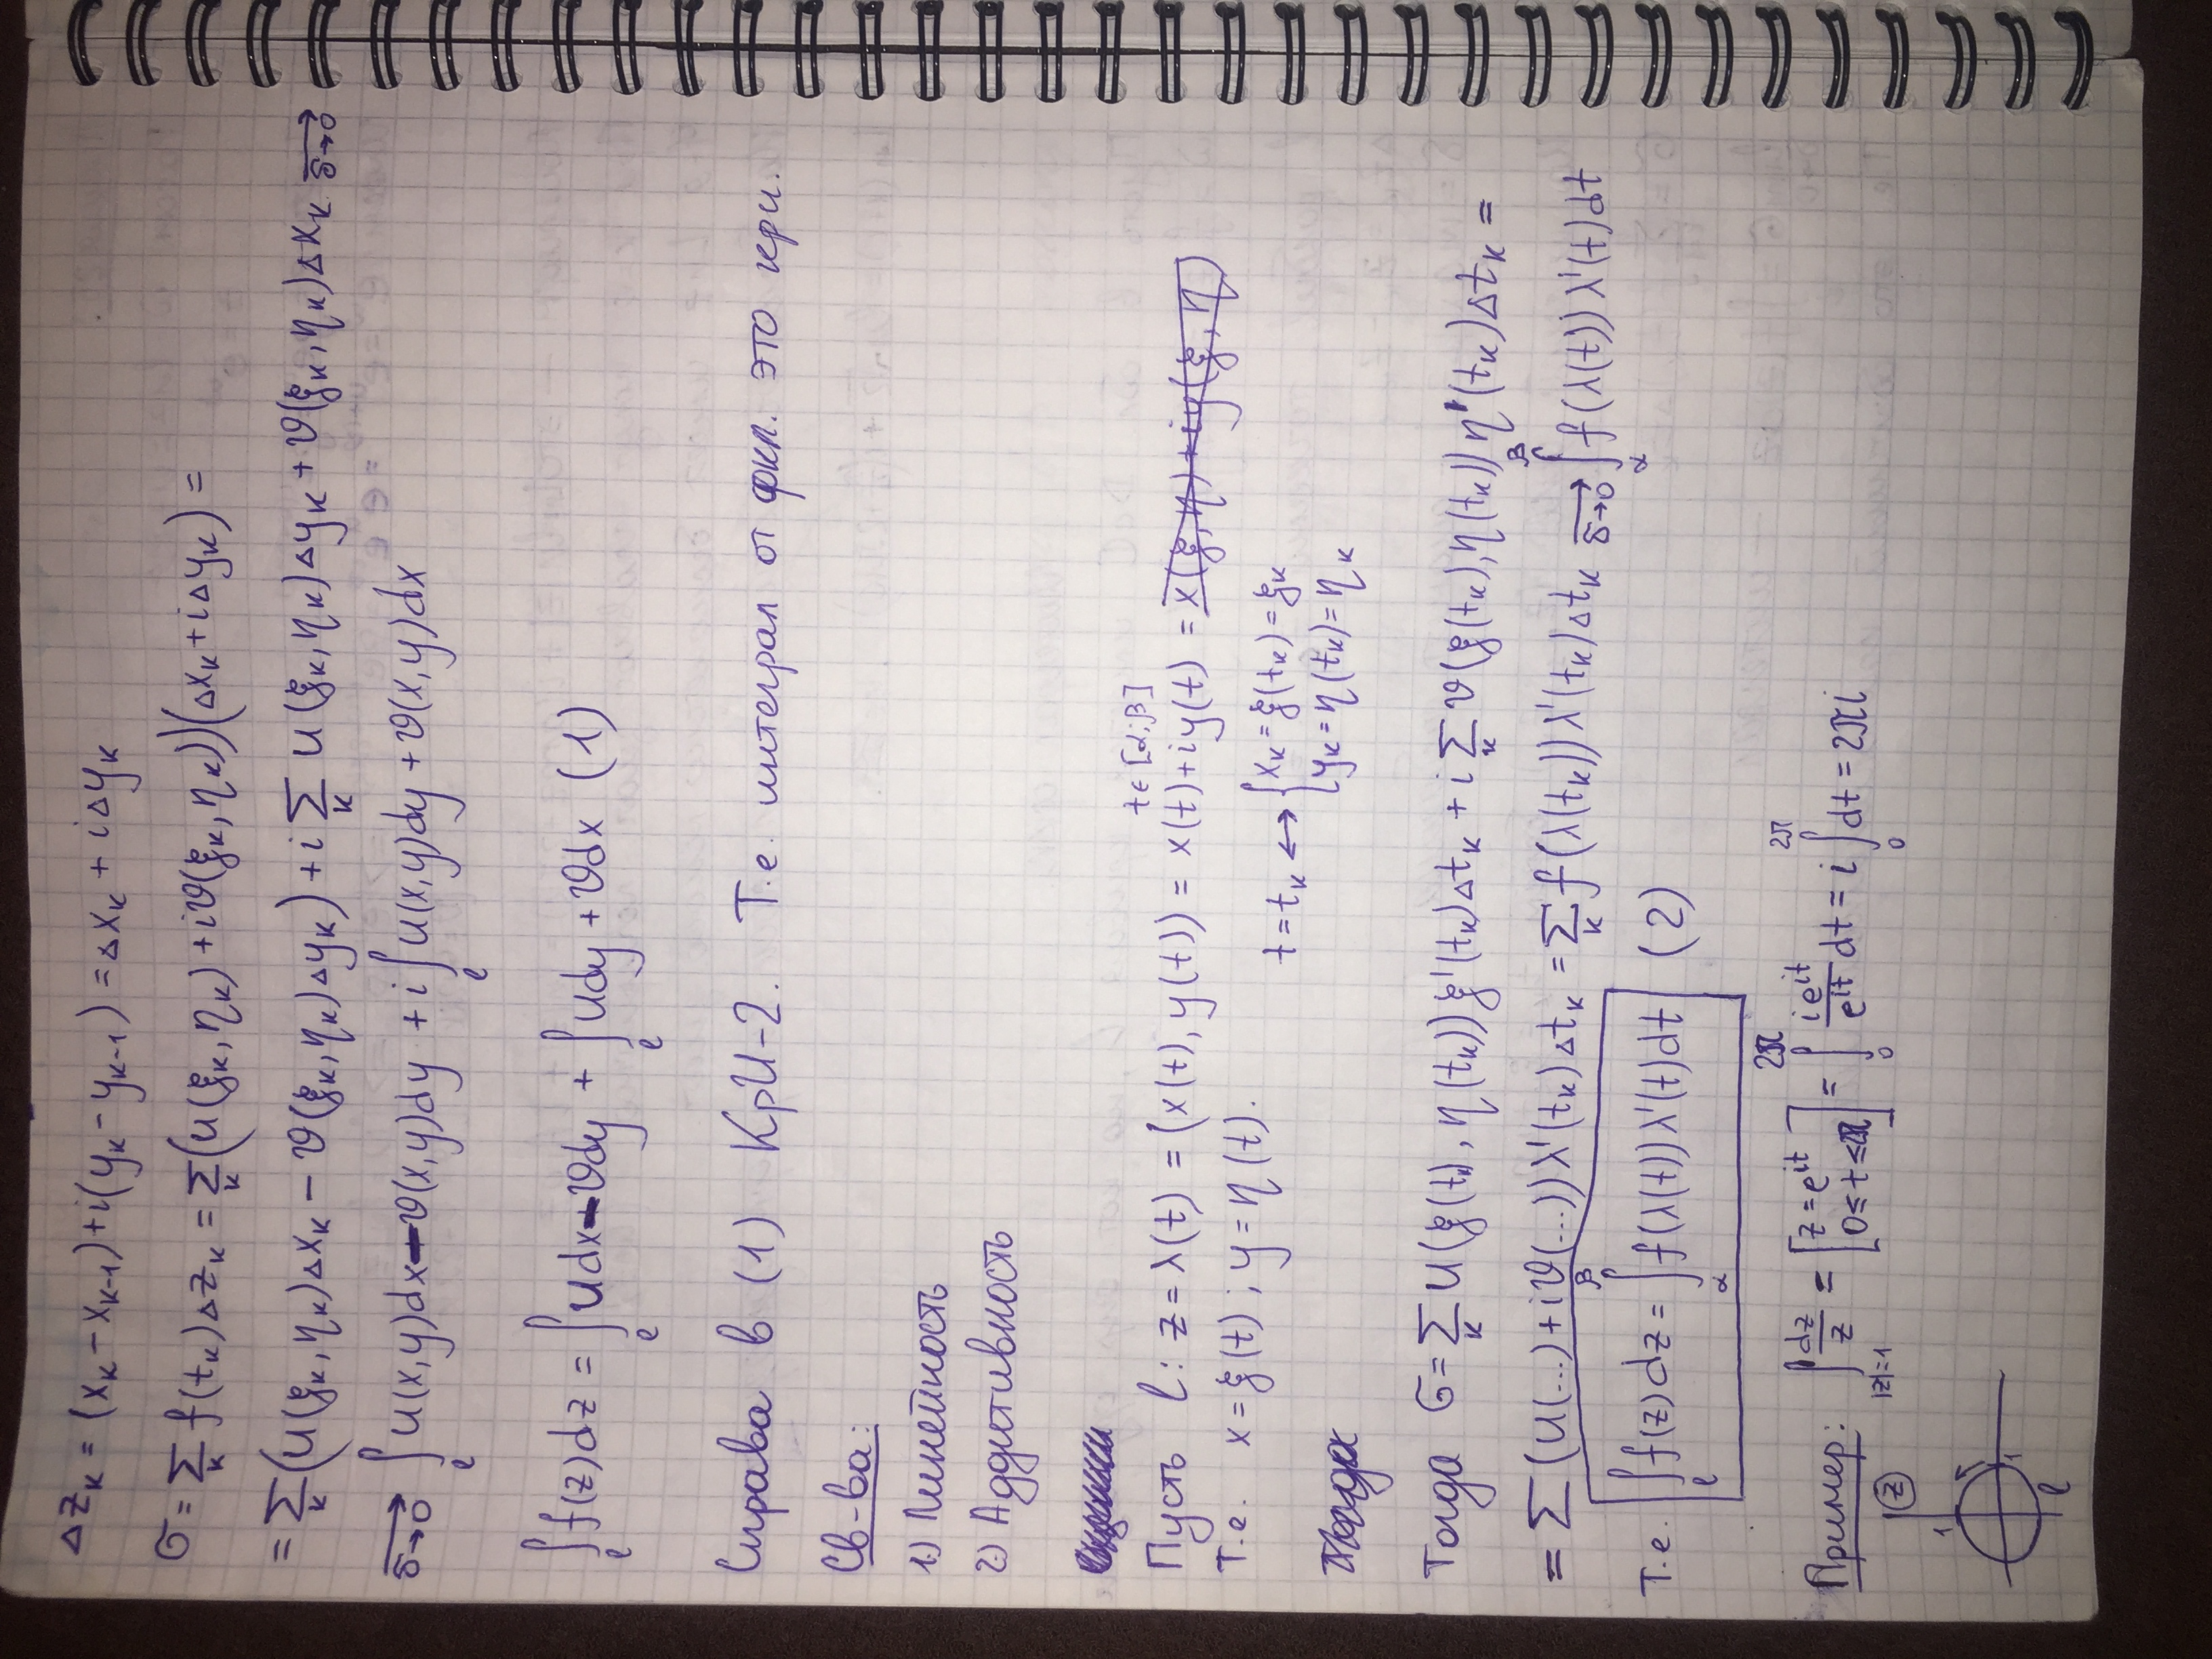 Δz_k = (x_k - x_{k-1}) + i(y_k - y_{k-1}) = Δx_k + iΔy_k
σ = Σ_k f(t_k)Δz_k = Σ_k (u(ξ_k, η_k) + iv(ξ_k, η_k))(Δx_k + iΔy_k) =
= Σ_k (u(ξ_k, η_k)Δx_k - v(ξ_k, η_k)Δy_k) + i Σ_k u(ξ_k, η_k)Δy_k + v(ξ_k, η_k)Δx_k →_{δ→0}
→_{δ→0} ∫_l u(x,y)dx - v(x,y)dy + i ∫_l u(x,y)dy + v(x,y)dx
∫_l f(z)dz = ∫_l udx - vdy + ∫_l udy + vdx (1)
Справа в (1) КрИ-2. Т.е. интеграл от фкп. это кри.
Св-ва:
1) Линейность
2) Аддитивность
t∈[α;β]
Пусть l: z = λ(t) = (x(t), y(t)) = x(t) + iy(t) = x(ξ, η) + iy(ξ, η)
Т.е. x = ξ(t); y = η(t).
t = t_k ↔ { x_k = ξ(t_k) = ξ_k
y_k = η(t_k) = η_k
Тогда
Тогда σ = Σ_k u(ξ(t_k), η(t_k))ξ'(t_k)Δt_k + i Σ_k v(ξ(t_k), η(t_k))η'(t_k)Δt_k =
= Σ (u(...) + iv(...))λ'(t_k)Δt_k = Σ_k f(λ(t_k))λ'(t_k)Δt_k →_{δ→0} ∫_α^β f(λ(t))λ'(t)dt
Т.е. ∫_l f(z)dz = ∫_α^β f(λ(t))λ'(t)dt (2)
Пример: ∫_{|z|=1} dz/z = [z = e^{it} 0 ≤ t ≤ 2π] = ∫_0^{2π} ie^{it}/e^{it} dt = i ∫_0^{2π} dt = 2πi
z
1
1
l